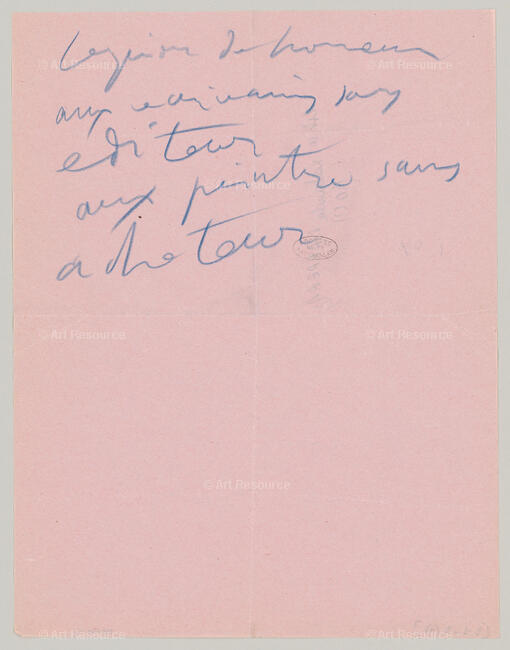 Legion dhonneur
aux ecrivains sans
editeur
aux peintre sans
acheteur
© Art Resource
© Art Resource
© Art Resource
© Art Resource
© Art Resource
© Art Resource
© Art Resource
© Art Resource